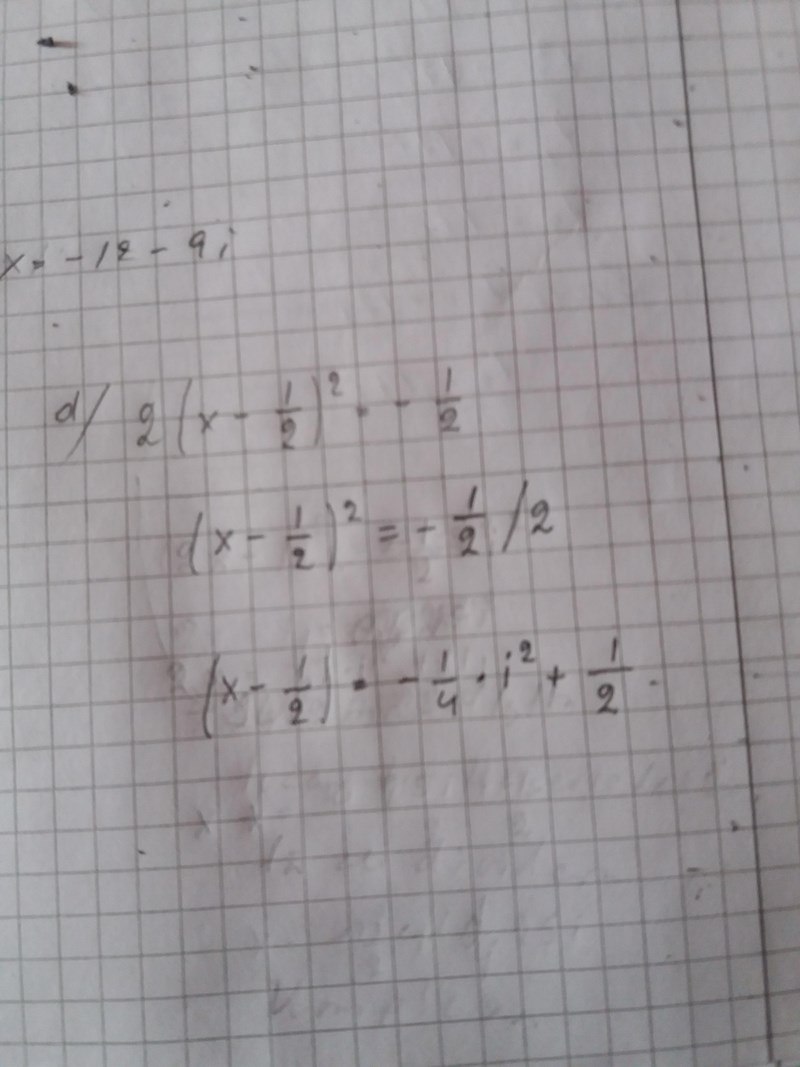 x = -12 - 9i
d/ 2(x - 1/2)² = - 1/2
(x - 1/2)² = - 1/2 / 2
(x - 1/2) = - 1/4 · i² + 1/2